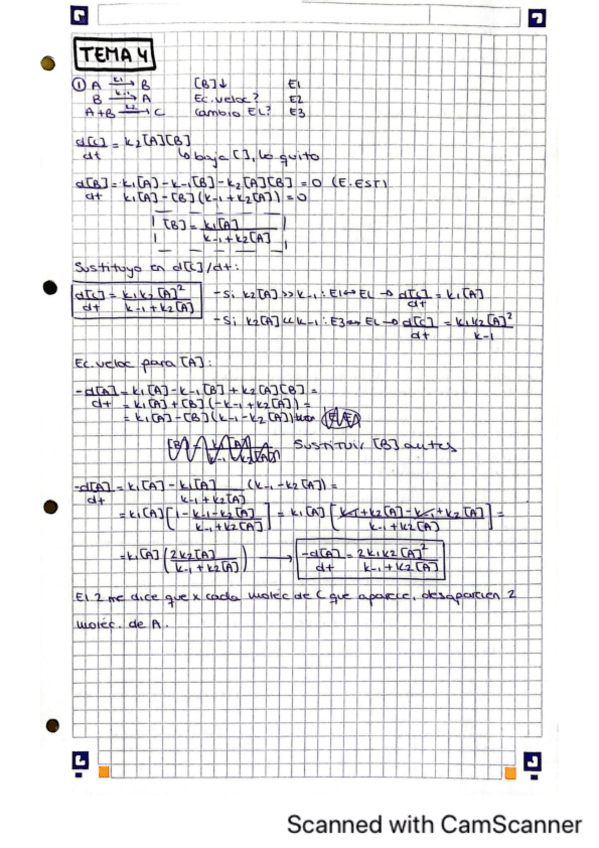 TEMA 4
① A —k1→ B [B]↓ E1
B —k-1→ A Ec. veloc? E2
A+B —k2→ C Cambio EL? E3
d[C]/dt = k2[A][B]
↳ baja [], lo quito
d[B]/dt = k1[A]-k-1[B]-k2[A][B] = 0 (E. EST)
k1[A]-[B](k-1+k2[A]) = 0
[B] = k1[A]/(k-1+k2[A])
Sustituyo en d[C]/dt:
d[C]/dt = k1k2[A]²/(k-1+k2[A]) -Si k2[A]>>k-1: E1↔EL → d[C]/dt = k1[A]
-Si k2[A]<<k-1: E3↔EL → d[C]/dt = k1k2[A]²/k-1
Ec. veloc para [A]:
-d[A]/dt = k1[A]-k-1[B]+k2[A][B] =
= k1[A]+[B](-k-1+k2[A]) =
= k1[A]-[B](k-1-k2[A])
Sustituir [B] antes
-d[A]/dt = k1[A]-k1[A]/(k-1+k2[A]) (k-1-k2[A]) =
= k1[A][1-(k-1-k2[A])/(k-1+k2[A])] = k1[A][(k-1+k2[A]-k-1+k2[A])/(k-1+k2[A])] =
= k1[A](2k2[A]/(k-1+k2[A])) → -d[A]/dt = 2k1k2[A]²/(k-1+k2[A])
El 2 me dice que x cada moléc de C que aparece, desaparecen 2
moléc. de A.
Scanned with CamScanner